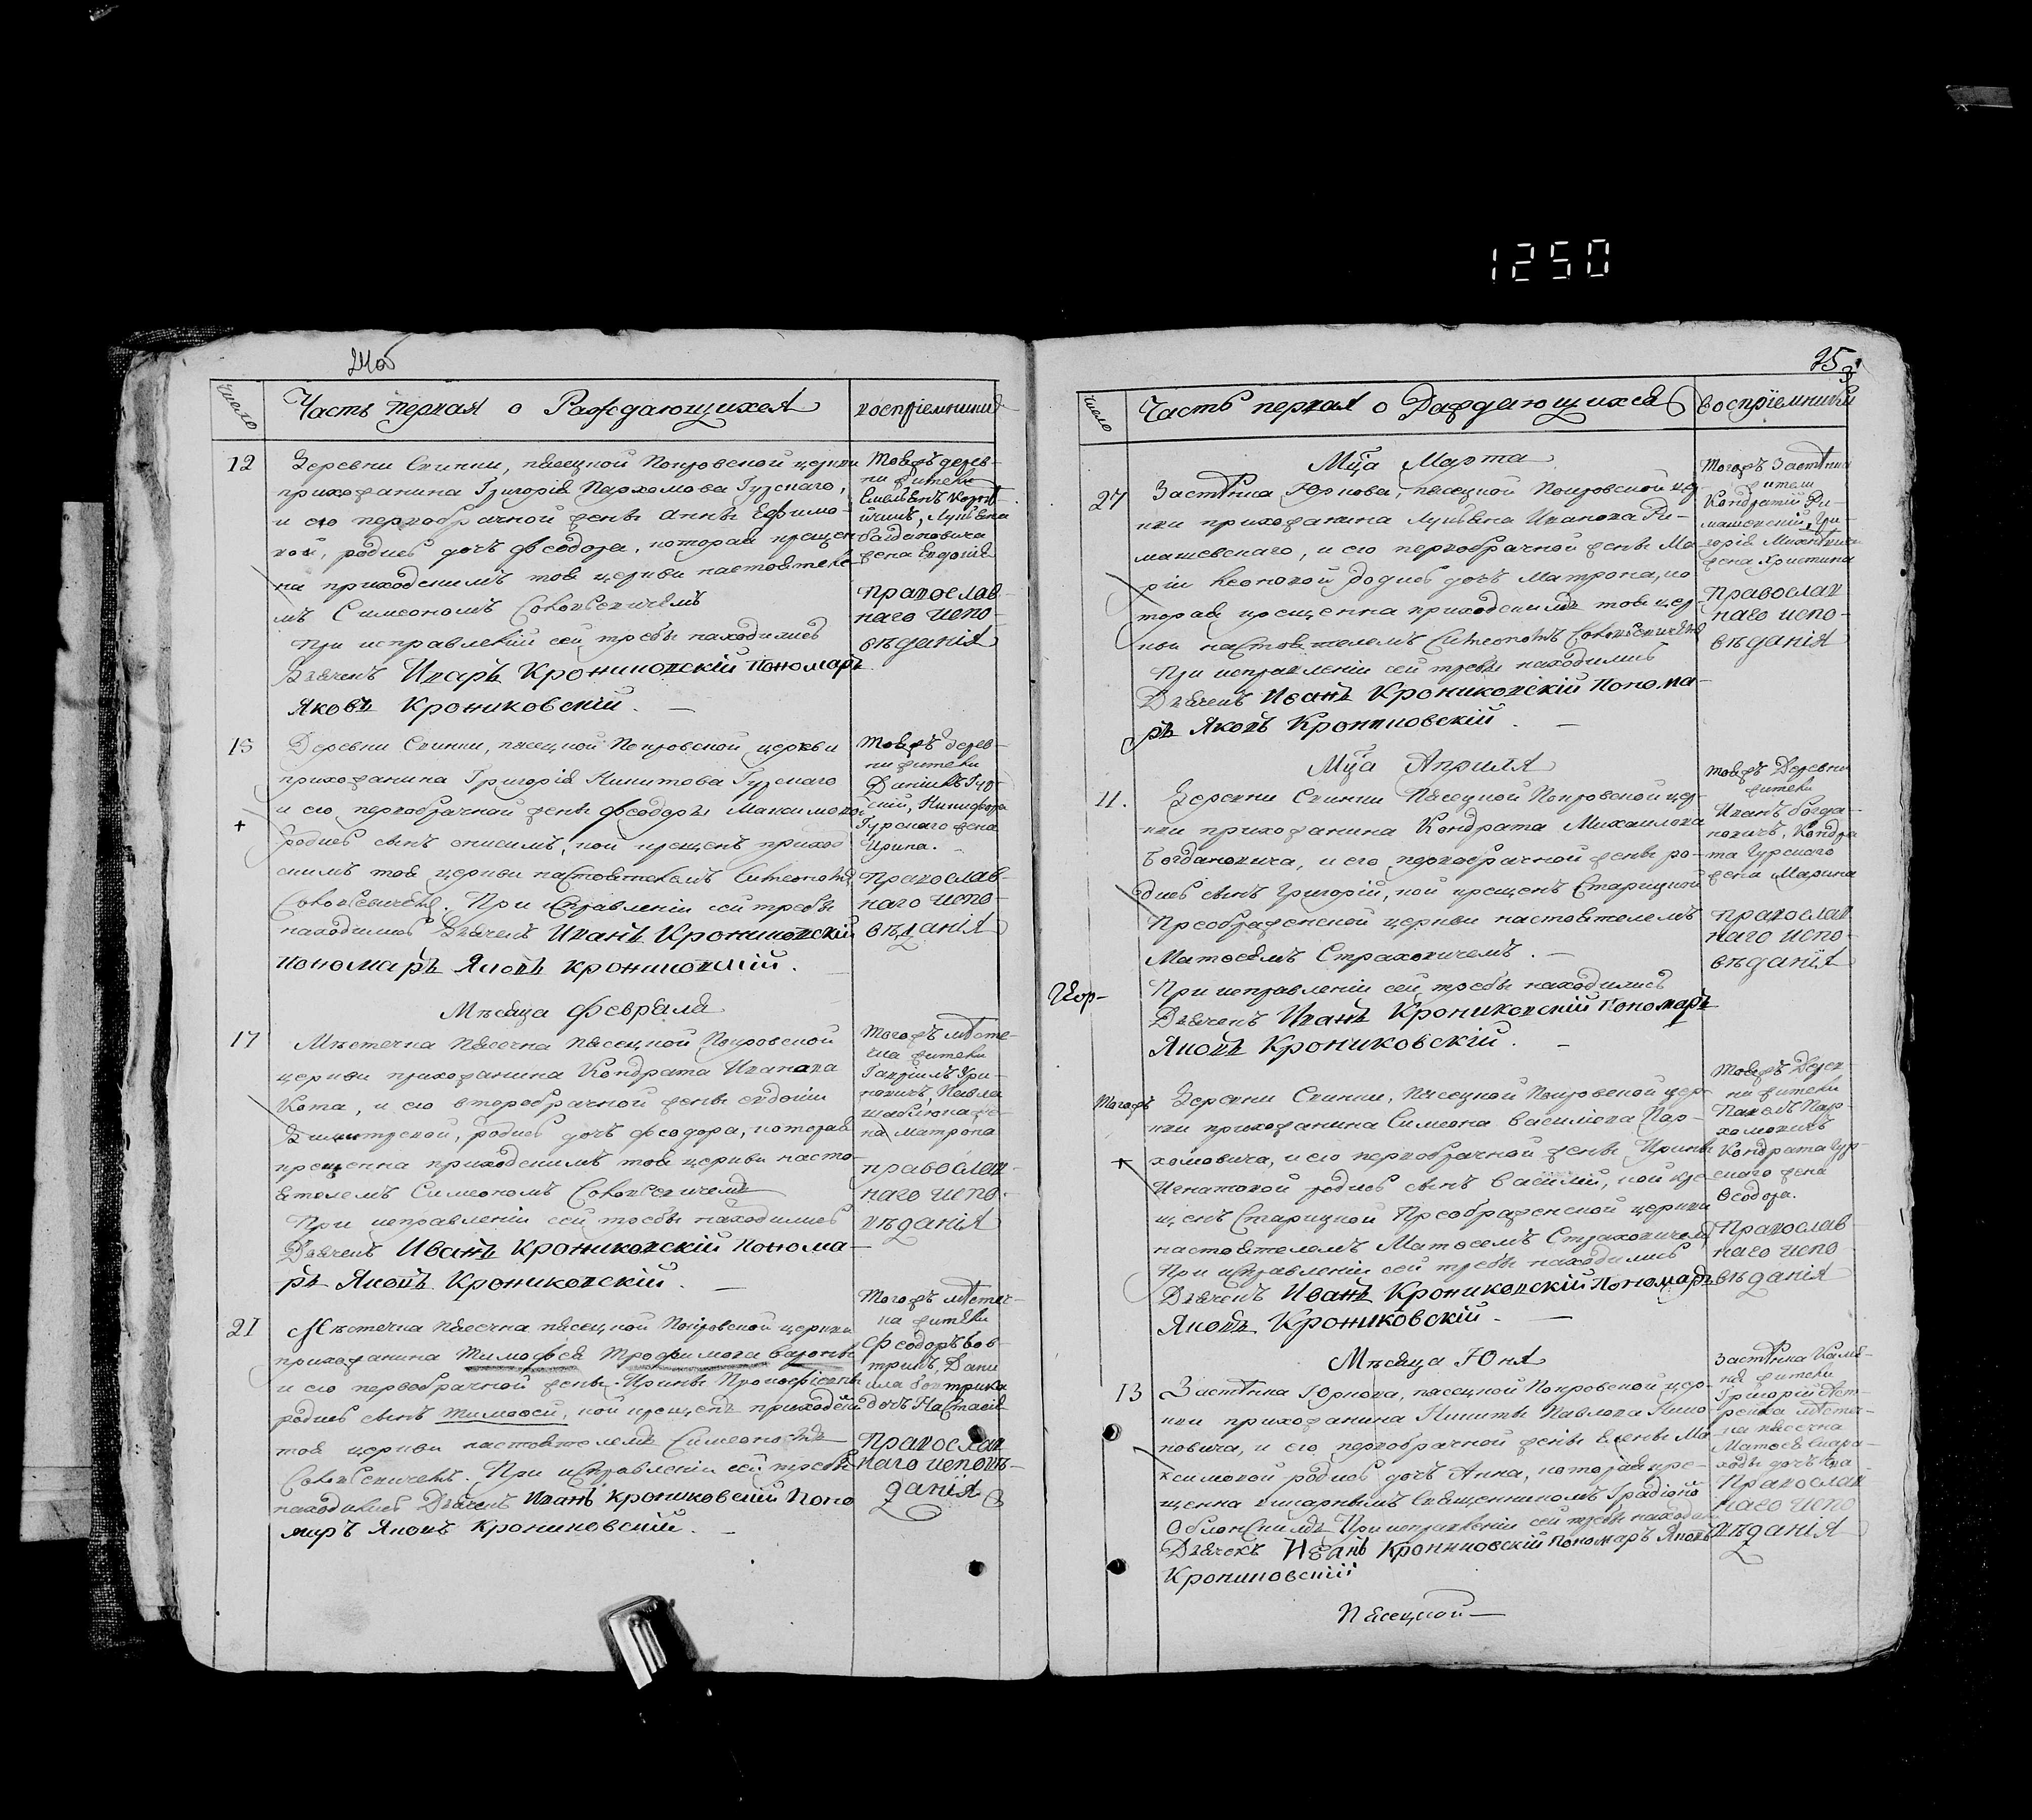 1250
24об
число
Часть первая о Раждающихся
воспріемники
12
Деревни Скипки, пясецкой Покровской церкви
прихожанина Григорія Пархомова Гурскаго,
и его первобрачной жены Анны Ефимо-
вой, родись дочь Феодора, которая креще-
на приходскимъ тоя церкви настояте-
мъ Симеономъ Соколовичемъ
При исправленіи сей требы находились
Дьячекъ Иванъ Крониковскій Пономаръ
Яковъ Крониковскій.
Тояжъ дерев-
ни жители
Емельянъ
Лукьяна
Богдановича
жена Евдокія
православ-
наго испо-
вѣданія
15
Деревни Скипки, пясецкой Покровской церкви
прихожанина Григорія Никитова Гурскаго
и его первобрачной жены Феодоры Максимовой
родись сынъ Онисимъ, кой крещенъ приход-
скимъ тоя церкви настоятелемъ Симеономъ
Соколовичемъ. При исправленіи сей требы
находились Дьячекъ Иванъ Крониковскій
пономаръ Яковъ Крониковскій.
Тояжъ дерев-
ни жители
Даніилъ Гур-
скій, Никифора
Гурскаго жена
Ирина.
православ-
наго испо-
вѣданія
Мѣсяца Февраля
17
Мѣстечка Пясечна Пясецкой Покровской
церкви прихожанина Кондрата Иванова
Кота, и его второбрачной жены Евдокіи
родись дочь Феодора, которая
крещенна приходскимъ тоя церкви насто-
ятелемъ Симеономъ Соколовичемъ
При исправленіи сей требы находились
Дьячекъ Иванъ Крониковскій Понома-
ръ Яковъ Крониковскій.
Тогожъ мѣсте-
чка жители
Гавріилъ Гри-
новичъ, Павла
же-
на Матрона
православ-
наго испо-
вѣданія
21
Мѣстечка Пясечна пясецкой Покровской церкви
прихожанина Тимофея Трофимова
и его первобрачной жены Ирины
родись сынъ Тимофей, кой крещенъ приходскимъ
тоя церкви настоятелемъ Симеономъ
Соколовичемъ. При исправленіи сей требы
находились Дьячекъ Иванъ Крониковскій Поно
маръ Яковъ Крониковскій.
Тогожъ мѣстеч-
ка жители
Феодоръ
Дани-
ила
дочь Настасія
Православ
наго исповѣ-
данія
25
число
Часть первая о Раждающихся
воспріемники
Мца Марта
27
Застѣнка Юркова, пясецкой Покровской цер
кви прихожанина Лукьяна Иванова Ри-
машевскаго, и его первобрачной жены Ма-
ріи родись дочь Матрона, ко
торая крещенна приходскимъ тоя цер-
кви настоятелемъ Симеономъ Соколовичемъ
При исправленіи сей требы находились
Дьячекъ Иванъ Крониковскій Понома-
ръ Яковъ Крониковскій.
Тогожъ Застѣнка
жители
Кондратій Ри-
машевскій, Гри-
горія
жена Христина
Православ
наго испо-
вѣданія
Мца Апріля
11.
Деревни Скипки Пясецкой Покровской цер-
кви прихожанина Кондрата Михаилова
Богдановича, и его первобрачной жены ро-
дись сынъ Григорій, кой крещенъ Старицкой
Преображенской церкви настоятелемъ
Матфеемъ Страховичемъ.
При исправленіи сей требы находились
Дьячекъ Иванъ Крониковскій Пономаръ
Яковъ Крониковскій.
Тояжъ Деревни
жители
Иванъ Богда-
новичъ, Кондра
та Гурскаго
жена Марина
Православ
наго испо-
вѣданія
Тогожъ
Деревни Скипки, Пясецкой Покровской цер-
кви прихожанина Симеона Василіева Пар-
хомовича, и его первобрачной жены Ирины
Игнатовой родись сынъ Василій, кой кре
щенъ Старицкой Преображенской церкви
настоятелемъ Матфеемъ Страховичемъ
При исправленіи сей требы находились
Дьячекъ Иванъ Крониковскій Пономаръ
Яковъ Крониковскій.
Тояжъ Дерев
ни жители
Павелъ Пар-
хомовичъ
Кондрата Гур-
скаго жена
Ѳеодора.
Православ
наго испо
вѣданія
Мѣсяца Юня
13
Застѣнка Юркова, пясецкой Покровской цер-
кви прихожанина Никиты Павлова Кли-
новича, и его первобрачной жены Елены Ма
ксимовой родись дочь Анна, которая кре-
щенна викарнымъ Священникомъ
При исправленіи сей требы находил
Дьячекъ Иванъ Крониковскій пономаръ Яковъ
Крониковскій
Застѣнка
жители
Григорій
мѣстеч-
ка пясечна
Матфея
дочь
Православ
наго испо
вѣданія
Пясецкой